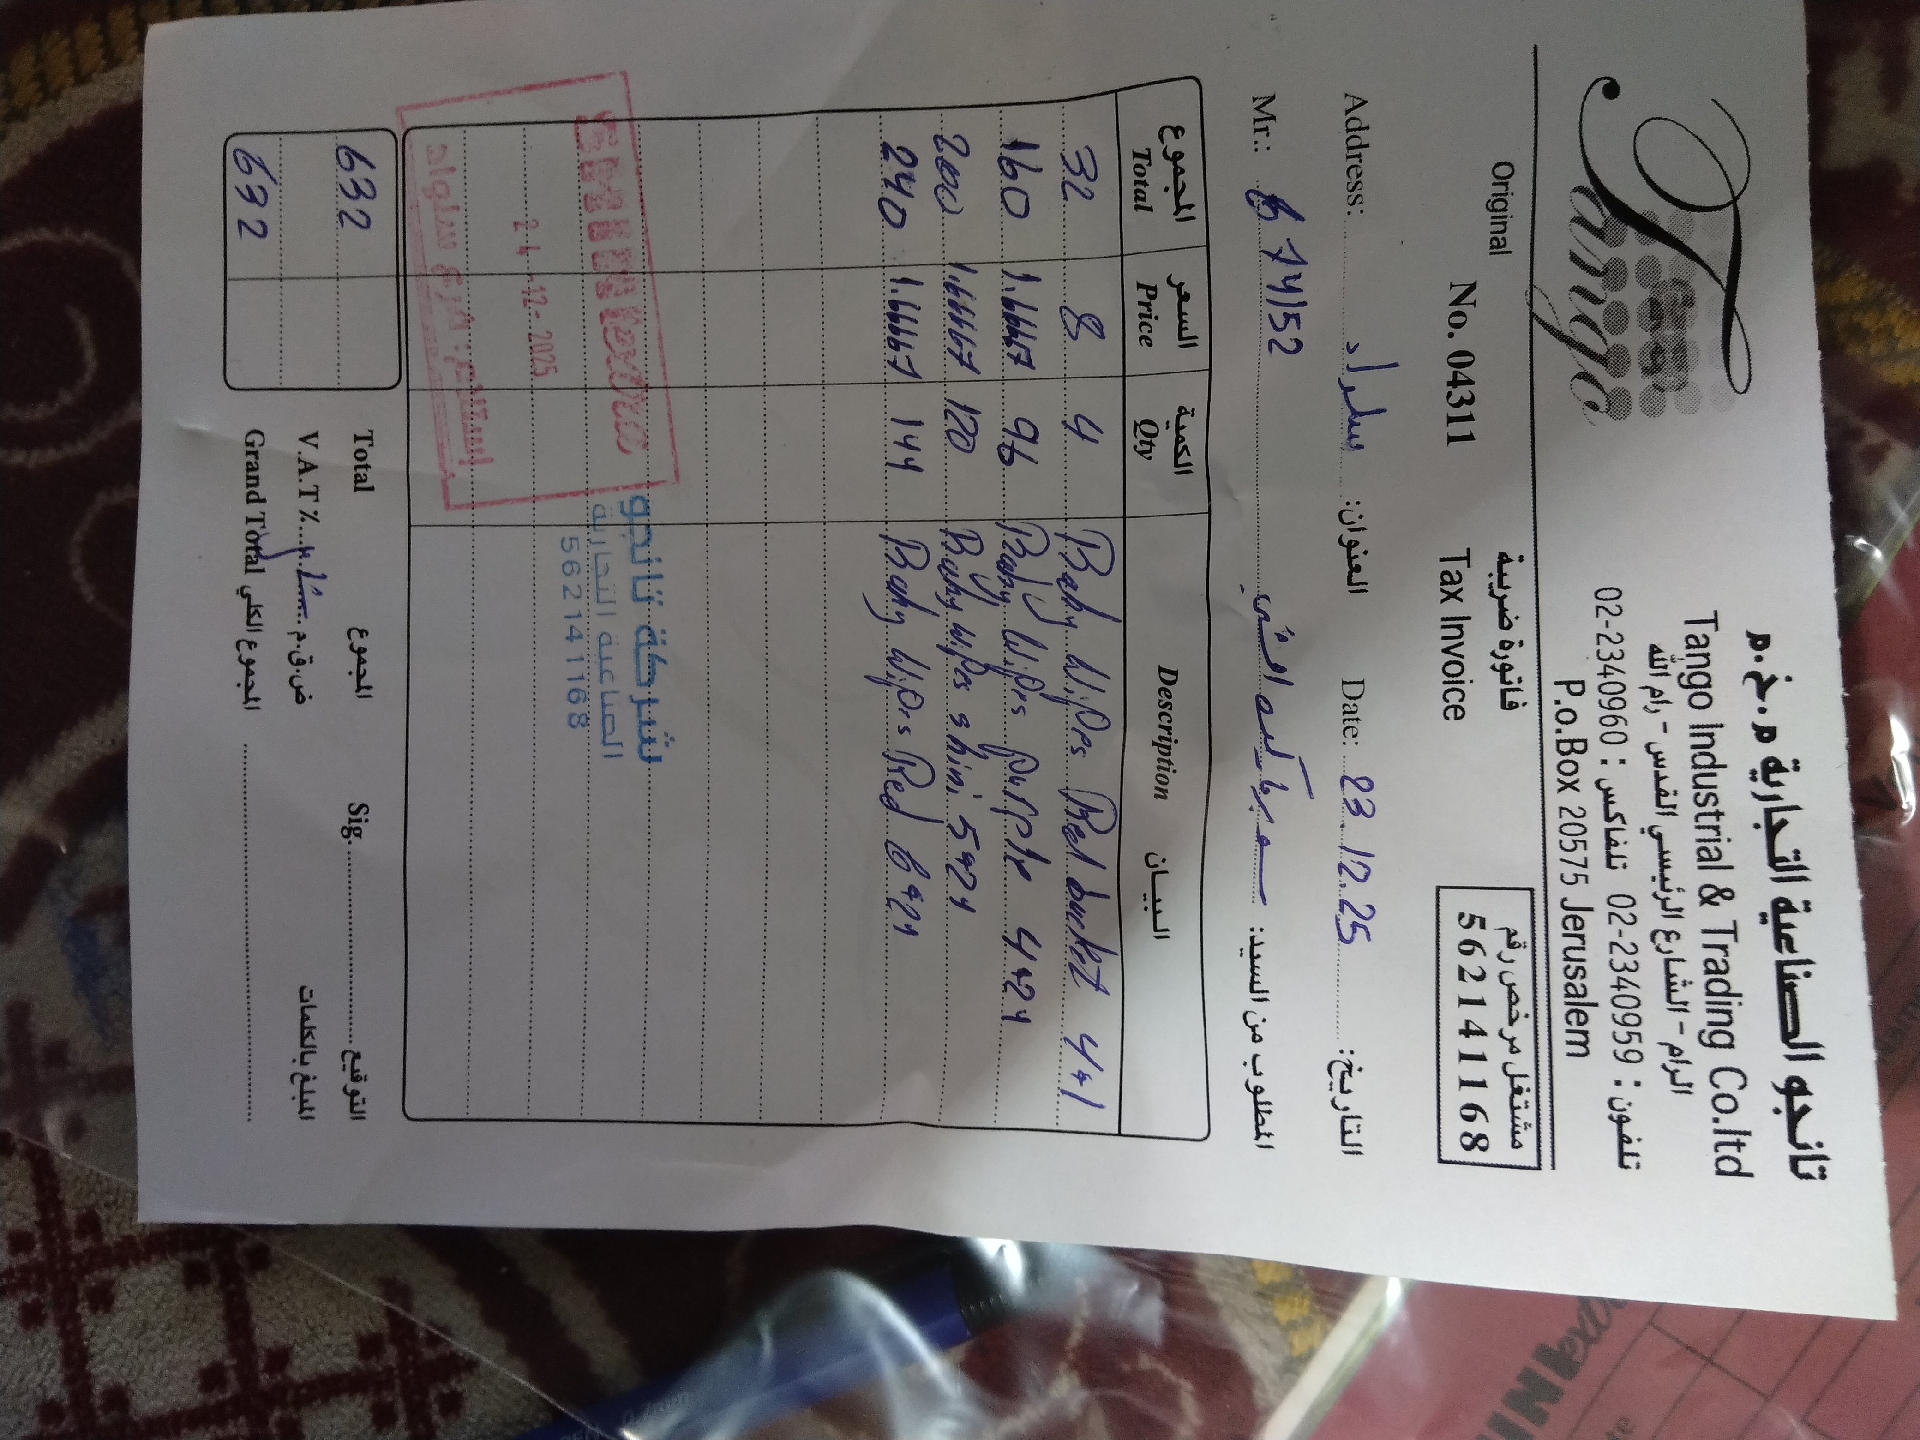 Tango
تانجو الصناعية التجارية م.خ.م
Tango Industrial & Trading Co.ltd
الرام - الشارع الرئيسي القدس - رام الله
تلفون : 02-2340959 تلفاكس : 02-2340960
P.o.Box 20575 Jerusalem
Original
فاتورة ضريبية
مشتغل مرخص رقم
562141168
No. 04311
Tax Invoice
Address: سلواد العنوان:
Date: 23.12.25 التاريخ:
Mr.: 674152 سوبر ماركت المطلوب من السيد:
المجموع السعر الكمية البيان
Total Price Qty Description
32 8 4 Baby Wipes Red bucket 4*1
160 1.66667 96 Baby Wipes purple 4*24
200 1.66667 120 Baby Wipes shini 5*24
240 1.66667 144 Baby Wipes Red 6*24
شركة تانجو
الصناعية التجارية
562141168
24-12-2025
632 Total المجموع Sig. التوقيع
V.A.T٪ ض.ق.م المبلغ بالكلمات
632 Grand Total المجموع الكلي